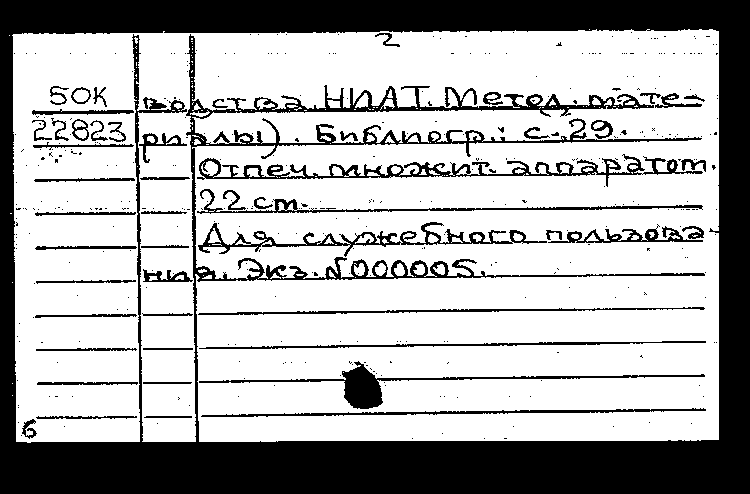 2
50К водства. НИАТ. Метод. мате-
22823 риалы). Библиогр.: с. 29.
Отпеч. множит. аппаратом.
22 см.
Для служебного пользова-
ния. Экз. №000005.
б